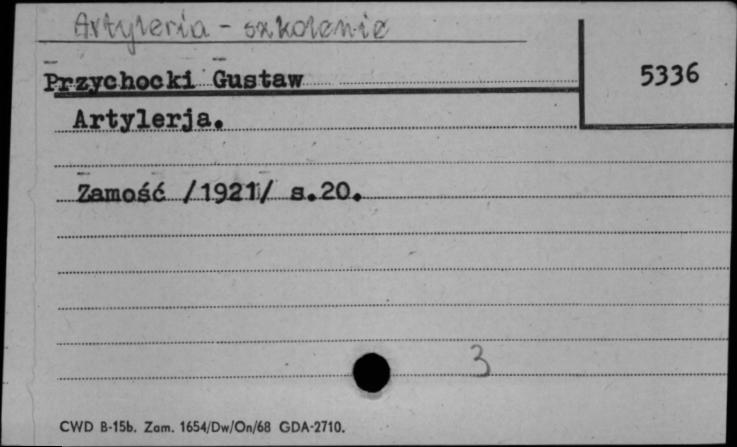 Artyleria - szkolenie
Przychocki Gustaw
5336
Artylerja.
Zamość /1921/ s.20.
3
CWD B-15b. Zam. 1654/Dw/On/68 GDA-2710.